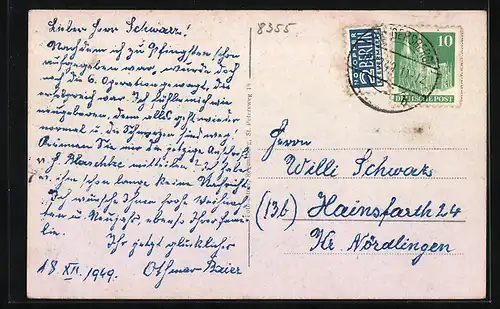 Lieber Herr Schwarz!
Nachdem ich zu Pfingsten schon
aufgegeben war, wurde doch
noch die 6. Operation gewagt, die
erfolgreich war. Ich fühle mich wie
neugeboren, denn alles geht wieder
normal u. die Schmerzen sind weg!
Können Sie mir die jetzige Anschrift
v. H. Blaschke mitteilen? Ich habe
v. ihm schon lange keine Nachricht.
Ich wünsche Ihnen frohe Weihnach-
ten u. Neujahr, ebenso Ihrer Fami-
lie.
Ihr jetzt glücklicher
18. XII. 1949. Othmar Baier
8355
NOTOPFER
2 BERLIN
STEUERMARKE
10
DEUTSCHE POST
St. Petersweg 18
Herrn
Willi Schwarz
(13b) Hainsfarth 24
Kr. Nördlingen